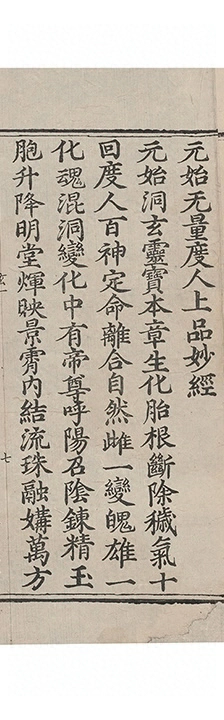 元始无量度人上品妙經
元始洞玄靈寶本章生化胎根斷除穢氣十
回度人百神定命離合自然雌一變魄雄一
化魂混洞變化中有帝尊呼陽召陰鍊精玉
胞升降明堂煇映景霄內結流珠融媾萬方
七